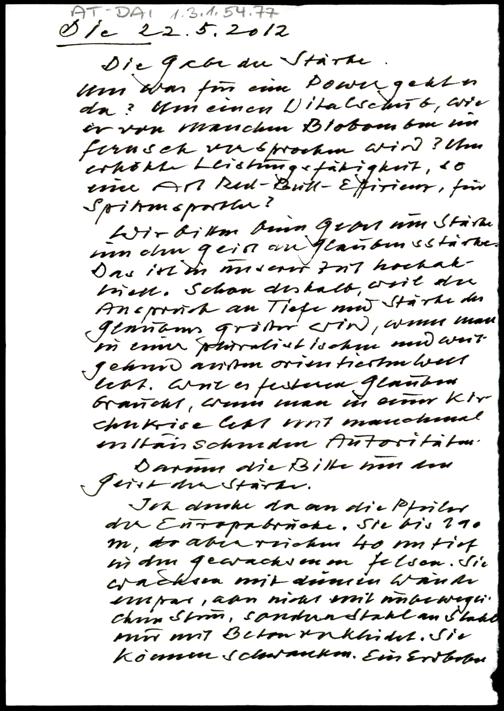 AT-DAI 1.3.1.54.77
Die 22.5.2012
Die Gabe der Stärke.
Um was für eine Power geht es
da? Um einen Vitalschub, wie
er von manchen Biobomben im
Fernseh versprochen wird? Um
erhöhte Leistungsfähigkeit, so
eine Art Red-Bull-Elixier, für
Spitzensportler?
Wir bitten beim Gebet um Stärke
um den Geist der Glaubensstärke.
Das ist in unserer Zeit hochak-
tuell. Schon deshalb, weil der
Anspruch an Tiefe und Stärke des
Glaubens größer wird, wenn man
in einer pluralistischen und weit-
gehend anders orientierten Welt
lebt. Weil es festeren Glauben
braucht, wenn man in einer Kir-
chenkrise lebt mit manchmal
enttäuschenden Autoritäten.
Darum die Bitte um den
Geist der Stärke.
Ich denke da an die Pfeiler
der Europabrücke. Sie bis 190
m, da aber reichen 40 m tief
in den gewachsenen Felsen. Sie
wachsen mit dünnen Wände
empor, aber nicht mit unbewegli-
chem Stein, sondern Stahl an Stahl
nur mit Beton verkleidet. Sie
können schwanken. Ein Erdbeben